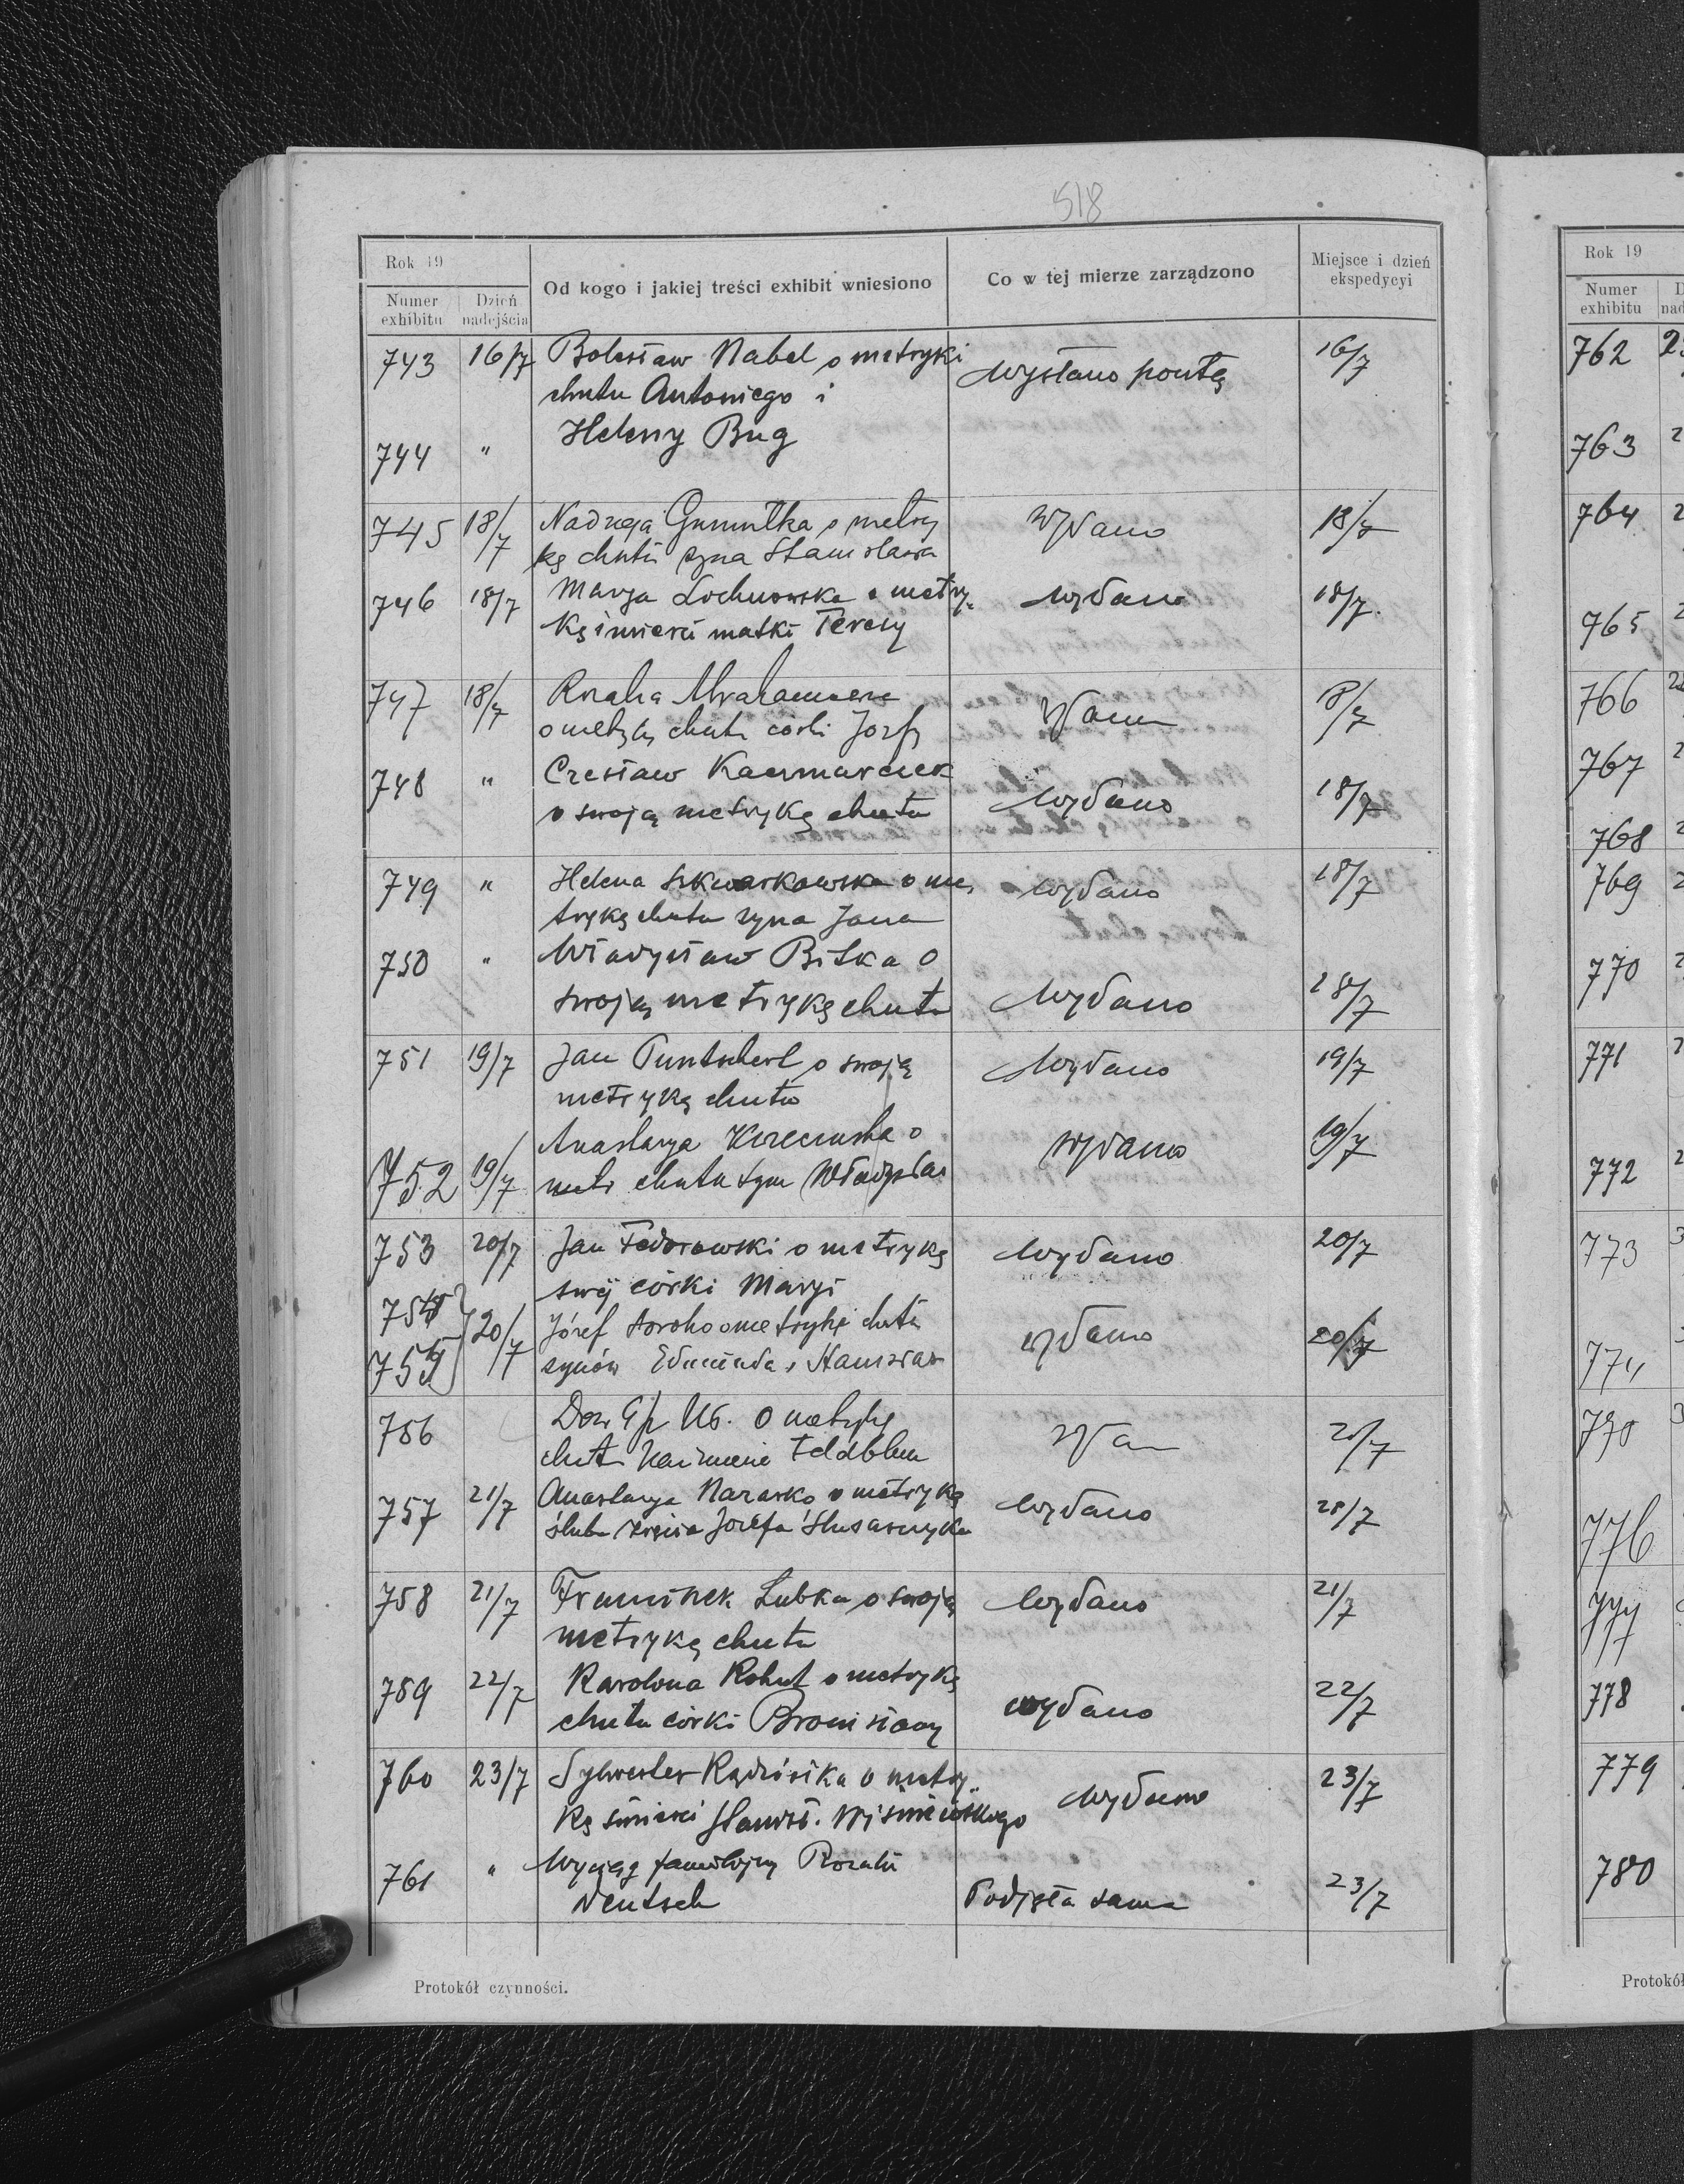 518
Rok 19
Numer exhibitu
Dzień nadejścia
Od kogo i jakiej treści exhibit wniesiono
Co w tej mierze zarządzono
Miejsce i dzień ekspedycyi
743 16/7 Bolesław Nabel o metryki wysłano pocztą 16/7
chrztu Antoniego i
744 " Heleny Bug
745 18/7 Gumułka o metry wydano 18/7
kę chrztu syna Stanisława
746 18/7 Marya Lochnowska o metry= wydano 18/7.
kę śmierci matki Teresy
747 18/7 Rozalia wydano 18/7
o metrykę chrztu córki Józefy
748 " Czesław Kaczmarczek
o swoją metrykę chrztu wydano 18/7
749 " Helena Szkwarkowska o me= wydano 18/7
trykę chrztu syna Jana
750 " Władysław Bitka o
swoją metrykę chrztu wydano 18/7
751 19/7 Jan Puntschert o swoją wydano 19/7
metrykę chrztu
752 19/7 Anastazya o wydano 19/7
metr chrztu syna Władysława
753 20/7 Jan Fedorowski o metrykę wydano 20/7
swej córki Maryi
754 20/7 Józef o metrykę chrztu wydano 20/7
755 synów Edmunda i Stanisława
756 o metrykę wydano 20/7
chrztu Kazimierza Feldblum
757 21/7 Anastazya Narasko o metrykę wydano 21/7
ślubu Józefa Ślusarczyka
758 21/7 Franciszek Lubka o swoją wydano 21/7
metrykę chrztu
759 22/7 Karolina Kohut o metrykę
chrztu córki Bronisławy wydano 22/7
760 23/7 Sylwester Kądziołka o metry= wydano 23/7
kę śmierci Stanisł. Wiśniewskiego
761 " Wyciąg familijny Rozalii
Deutsch Podjęła sama 23/7
Protokół czynności.
Rok 19
Numer exhibitu
762
763
764
765
766
767
768
769
770
771
772
773
774
776
777
778
779
780